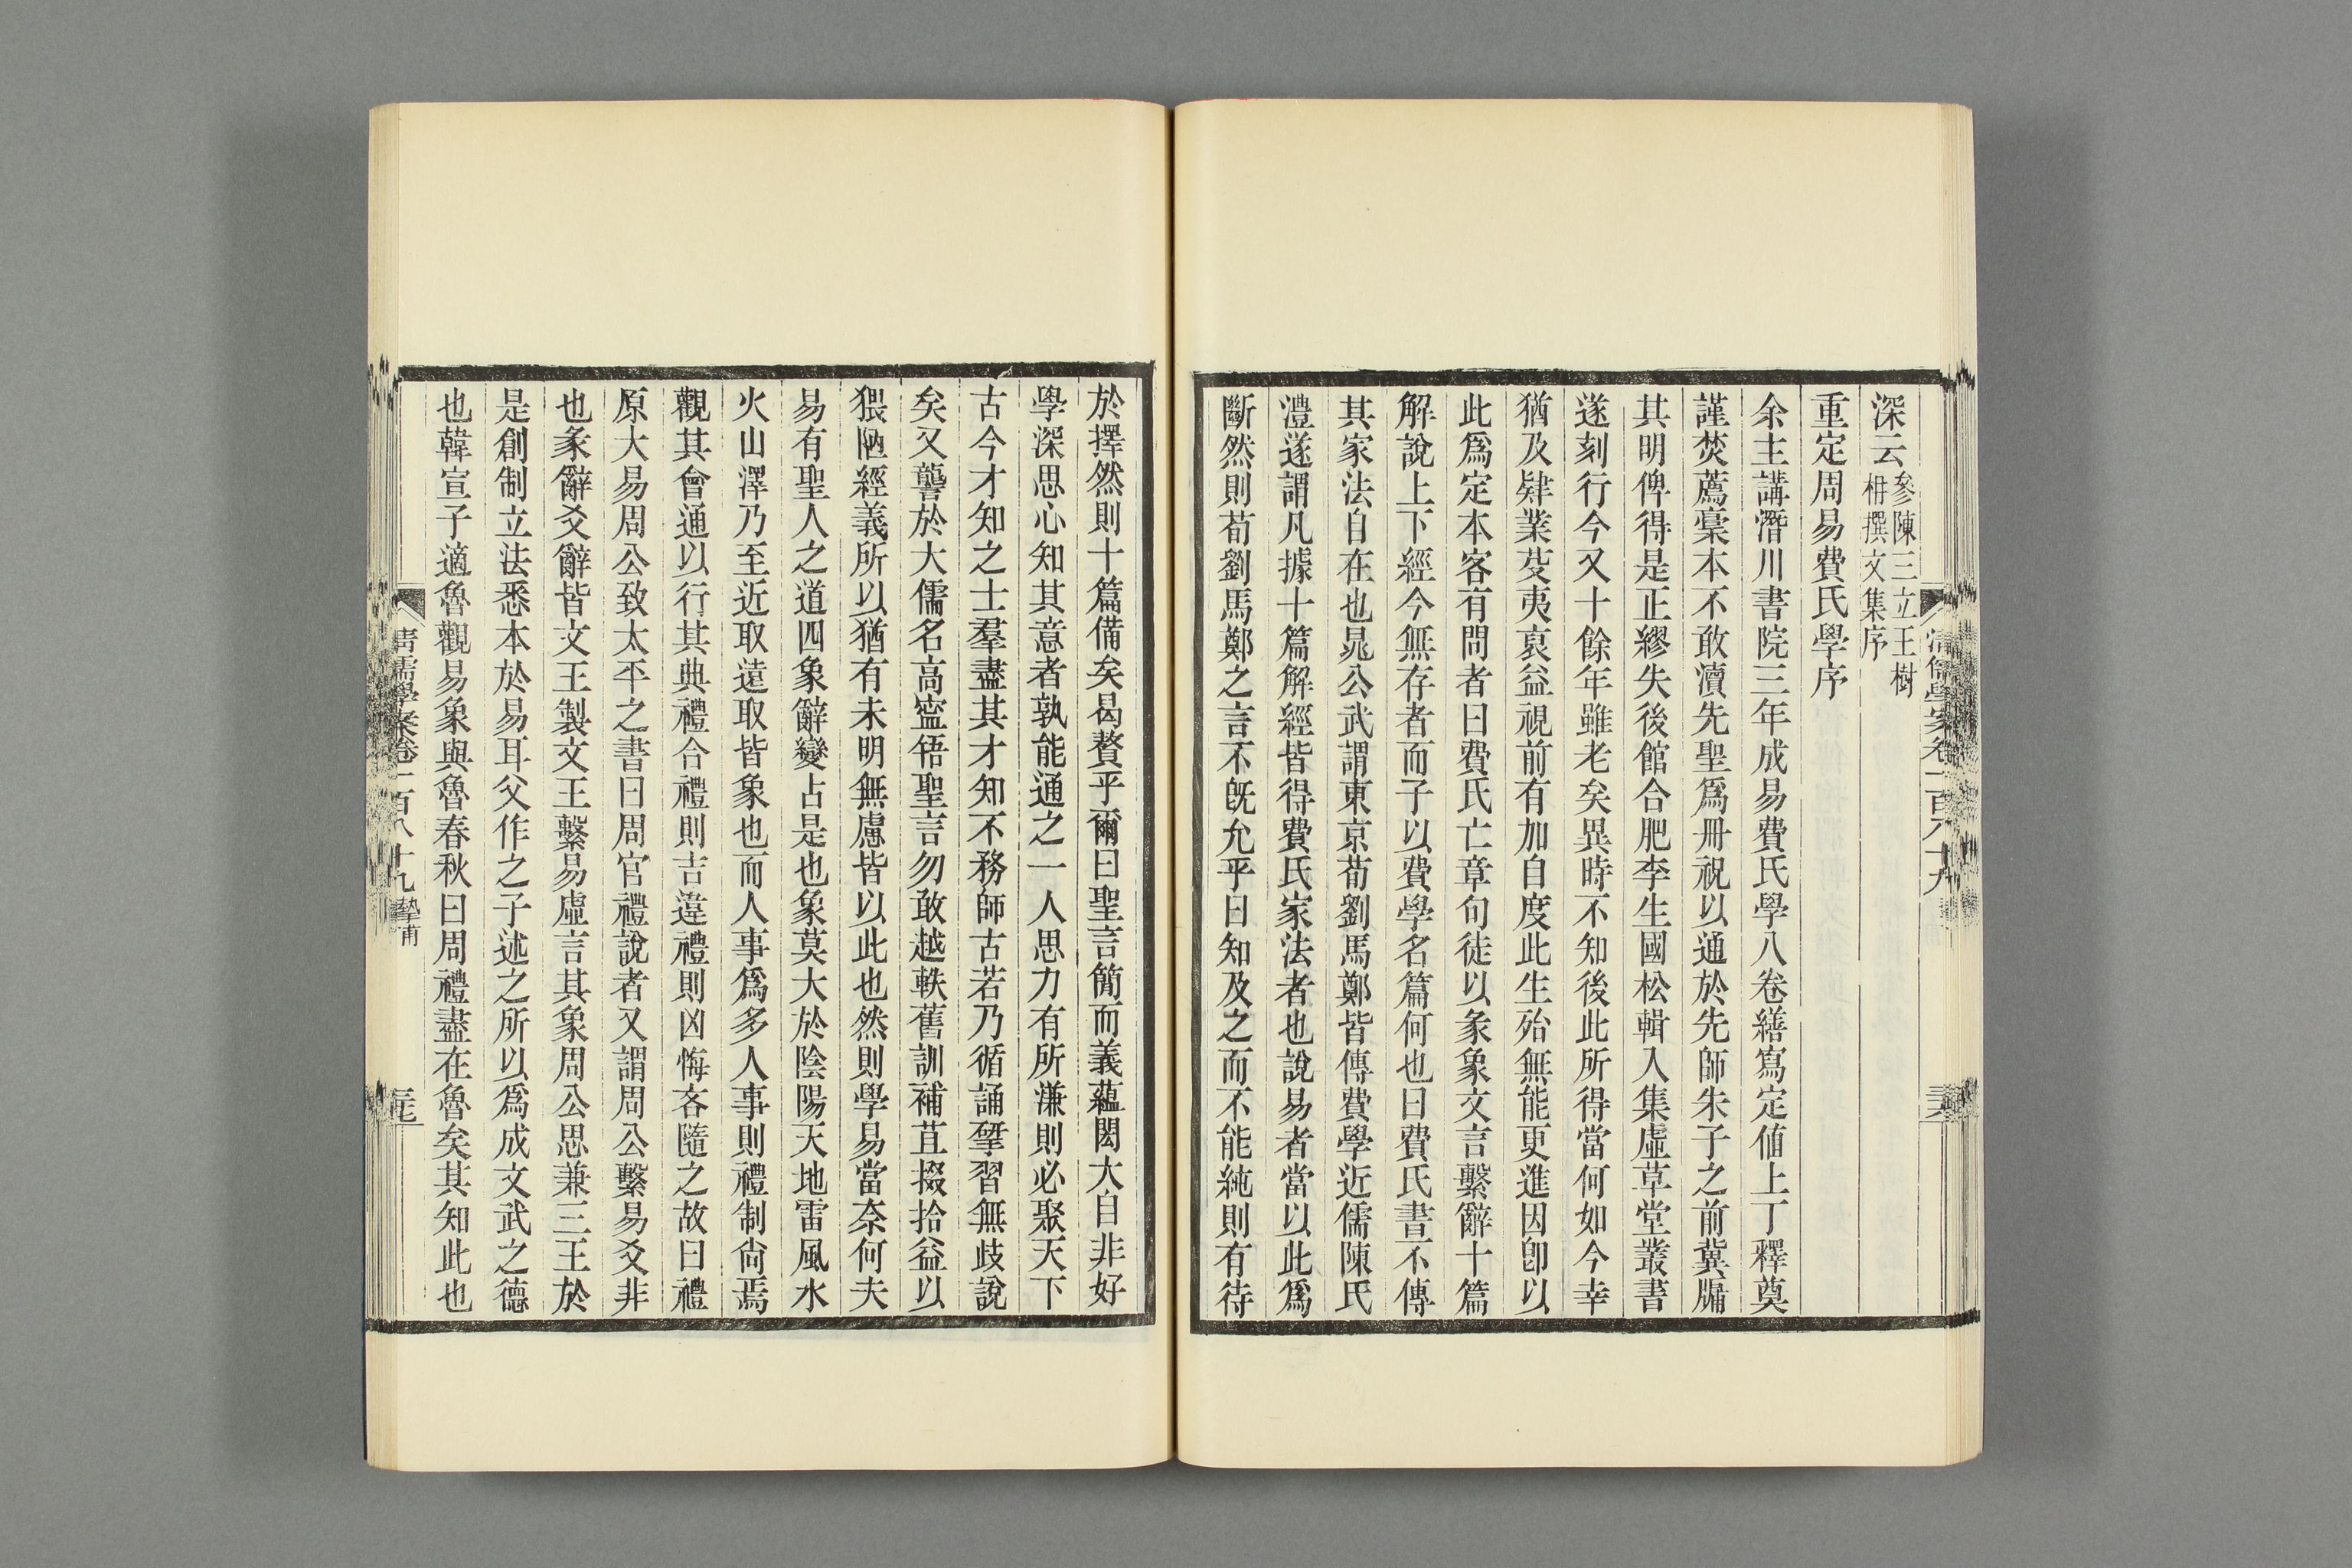 深云參陳三立王樹枏撰文集序
重定周易費氏學序
余主講潛川書院三年成易費氏學八卷繕寫定値上丁釋奠
謹焚薦稾本不敢瀆先聖爲冊祝以通於先師朱子之前冀牖
其明俾得是正繆失後館合肥李生國松輯入集虛草堂叢書
遂刻行今又十餘年雖老矣異時不知後此所得當何如今幸
猶及肄業芟夷裒益視前有加自度此生殆無能更進因卽以
此爲定本客有問者曰費氏亡章句徒以彖象文言繫辭十篇
解說上下經今無存者而子以費學名篇何也曰費氏書不傳
其家法自在也晁公武謂東京荀劉馬鄭皆傳費學近儒陳氏
澧遂謂凡據十篇解經皆得費氏家法者也說易者當以此爲
斷然則荀劉馬鄭之言不旣允乎曰知及之而不能純則有待
於擇然則十篇備矣曷贅乎爾曰聖言簡而義蘊閎大自非好
學深思心知其意者孰能通之一人思力有所濂則必聚天下
古今才知之士羣盡其才知不務師古若乃循誦揅習無歧說
矣又讋於大儒名高寍俉聖言勿敢越軼舊訓補苴掇拾益以
猥陋經義所以猶有未明無慮皆以此也然則學易當奈何夫
易有聖人之道四象辭變占是也象莫大於陰陽天地雷風水
火山澤乃至近取遠取皆象也而人事爲多人事則禮制尙焉
觀其會通以行其典禮合禮則吉違禮則凶悔吝隨之故曰禮
原大易周公致太平之書曰周官禮說者又謂周公繫易爻非
也彖辭爻辭皆文王製文王繫易虛言其象周公思兼三王於
是創制立法悉本於易耳父作之子述之所以爲成文武之德
也韓宣子適魯觀易象與魯春秋曰周禮盡在魯矣其知此也
清儒學案卷一百八十九 摯甫